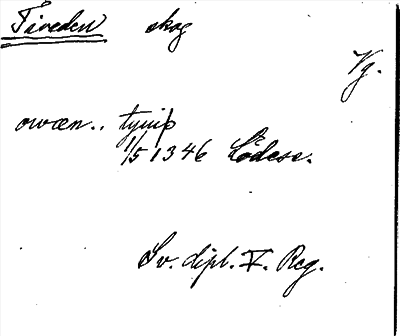 Tiveden skog
Vg.
owæn.. tyuiþ
1/5 1346 Lödese.
Sv. dipl. V. Reg.